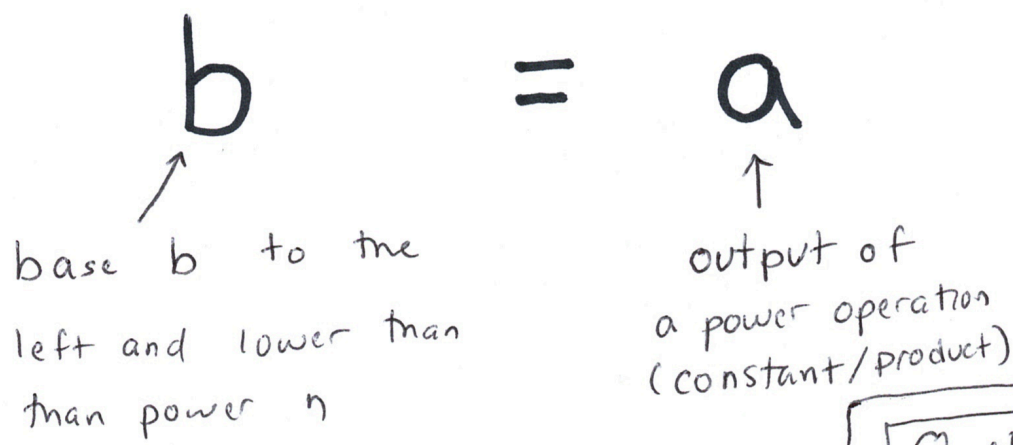 b = a
base b to the
left and lower than
than power n
output of
a power operation
(constant/product)